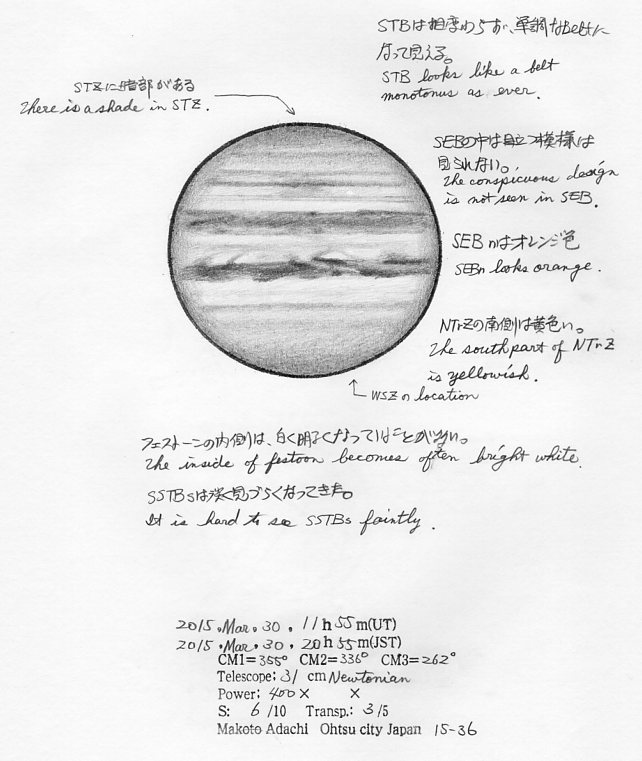 STBは相変わらず、単調なbeltに
なって見える。
STB looks like a belt
monotonus as ever.
STZに暗部がある
There is a shade in STZ.
SEBの中は目立つ模様は
見られない。
The conspicuous design
is not seen in SEB.
SEBnはオレンジ色
SEBn looks orange.
NTrZの南側は黄色い。
The south part of NTrZ
is yellowish.
WSZ location
フェストーンの内側は、白く明るくなっていることが多い。
The inside of festoon becomes often bright white.
SSTBsは淡く見づらくなってきた。
It is hard to see SSTBs faintly.
2015.Mar.30. 11h 55m(UT)
2015.Mar.30. 20h 55m(JST)
CM1=355° CM2=336° CM3=262°
Telescope: 31 cm Newtonian
Power: 400× ×
S: 6/10 Transp.: 3/5
Makoto Adachi Ohtsu city Japan 15-36